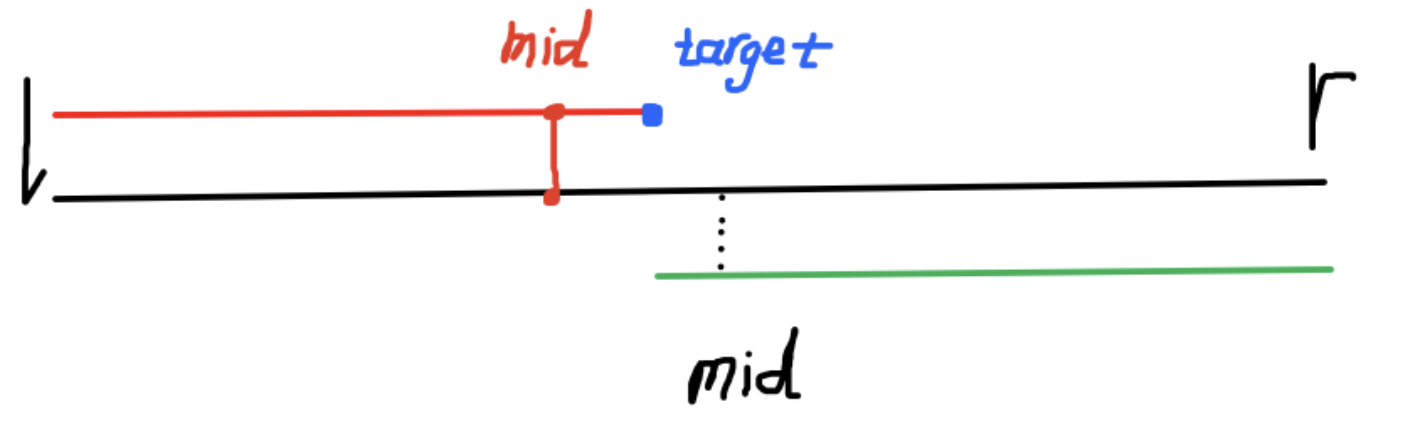 mid target
l r
mid